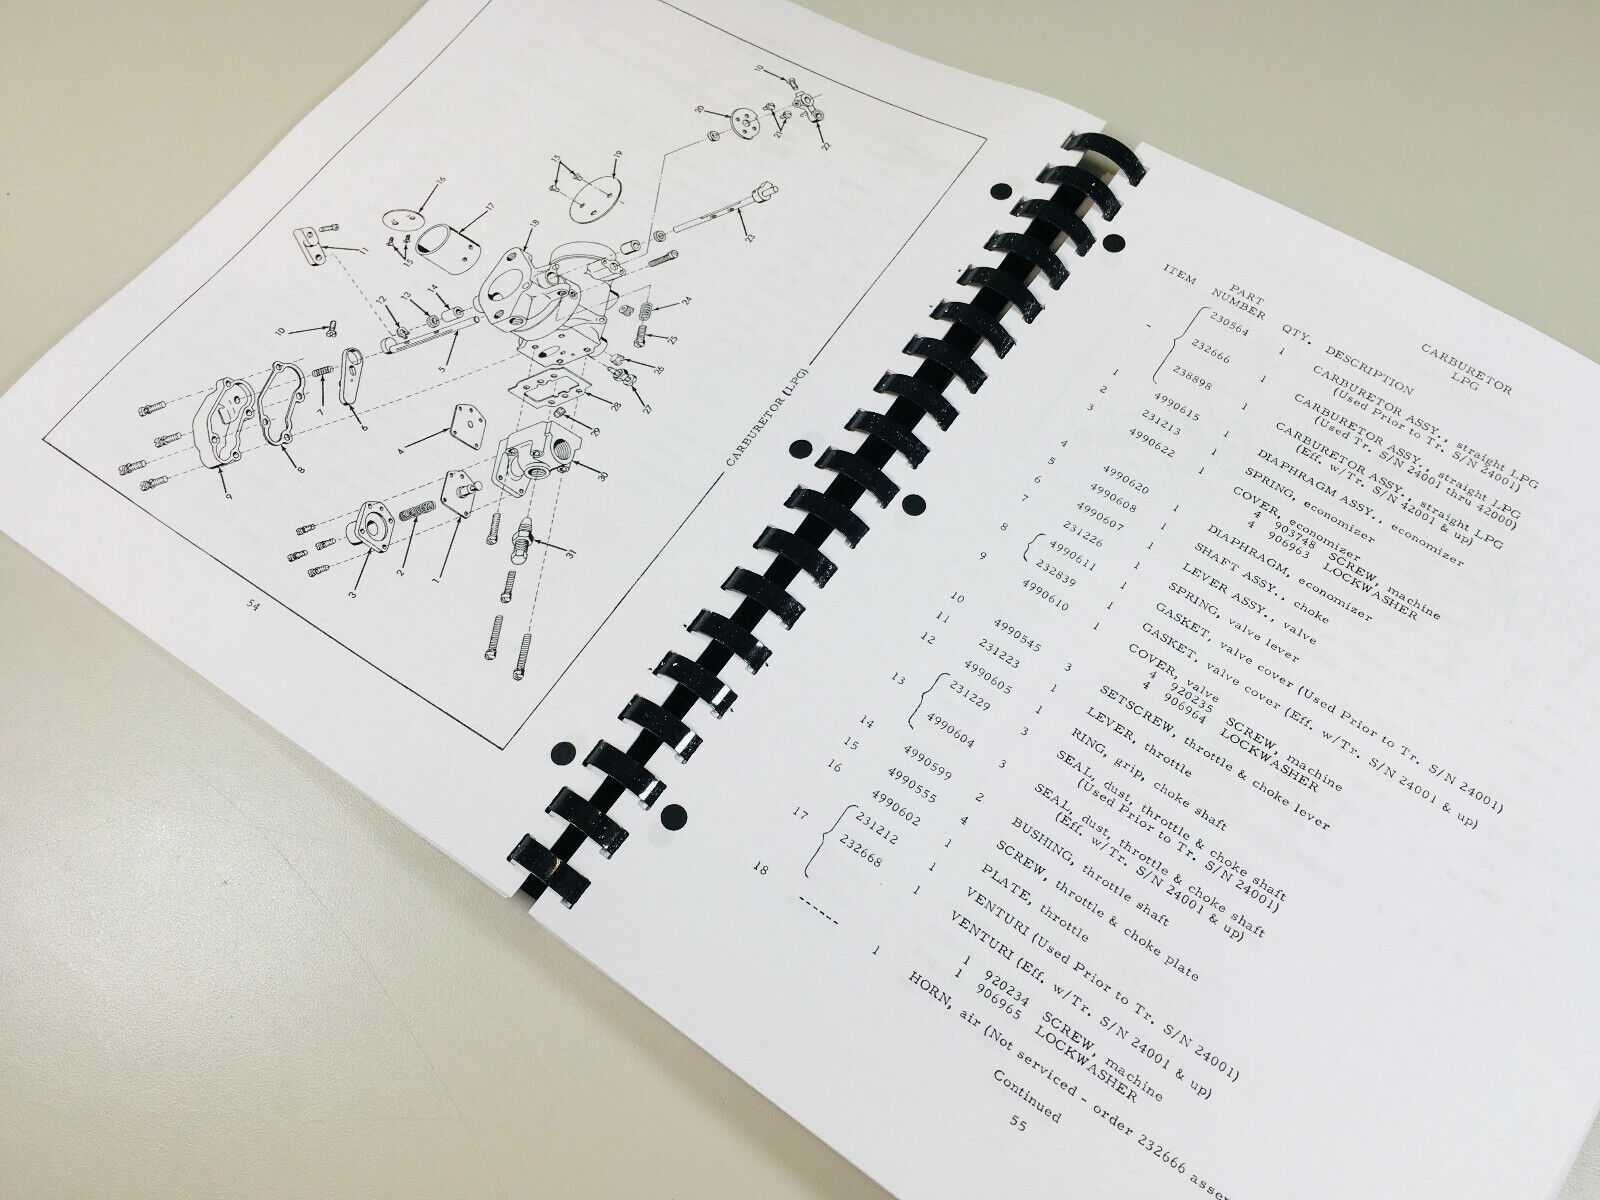 10
20
21
22
15
19
16
17
18
23
11
15
12
13
14
10
5
24
25
7
6
26
27
28
4
29
9
8
30
3
2
1
31
CARBURETOR (LPG)
54
CARBURETOR
LPG
ITEM PART NUMBER QTY. DESCRIPTION
- 230564 1 CARBURETOR ASSY., straight LPG
(Used Prior to Tr. S/N 24001)
232666 1 CARBURETOR ASSY., straight LPG
(Used Tr. S/N 24001 thru 42000)
238898 1 CARBURETOR ASSY., straight LPG
(Eff. w/Tr. S/N 42001 & up)
1 4990615 1 DIAPHRAGM ASSY., economizer
2 231213 1 SPRING, economizer
3 4990622 1 COVER, economizer
4 903748 SCREW, machine
4 906963 LOCKWASHER
4 4990620 1 DIAPHRAGM, economizer
5 4990608 1 SHAFT ASSY., choke
6 4990607 1 LEVER ASSY., valve
7 231226 1 SPRING, valve lever
8 4990611 1 GASKET, valve cover (Used Prior to Tr. S/N 24001)
232839 1 GASKET, valve cover (Eff. w/Tr. S/N 24001 & up)
9 4990610 1 COVER, valve
4 920235 SCREW, machine
4 906964 LOCKWASHER
10 4990545 3 SETSCREW, throttle & choke lever
11 231223 1 LEVER, throttle
12 4990605 1 RING, grip, choke shaft
13 231229 3 SEAL, dust, throttle & choke shaft
(Used Prior to Tr. S/N 24001)
4990604 3 SEAL, dust, throttle & choke shaft
(Eff. w/Tr. S/N 24001 & up)
14 4990599 2 BUSHING, throttle shaft
15 4990555 4 SCREW, throttle & choke plate
16 4990602 1 PLATE, throttle
17 231212 1 VENTURI (Used Prior to Tr. S/N 24001)
232668 1 VENTURI (Eff. w/Tr. S/N 24001 & up)
1 920234 SCREW, machine
1 906965 LOCKWASHER
18 ------ 1 HORN, air (Not serviced - order 232666
Continued
55